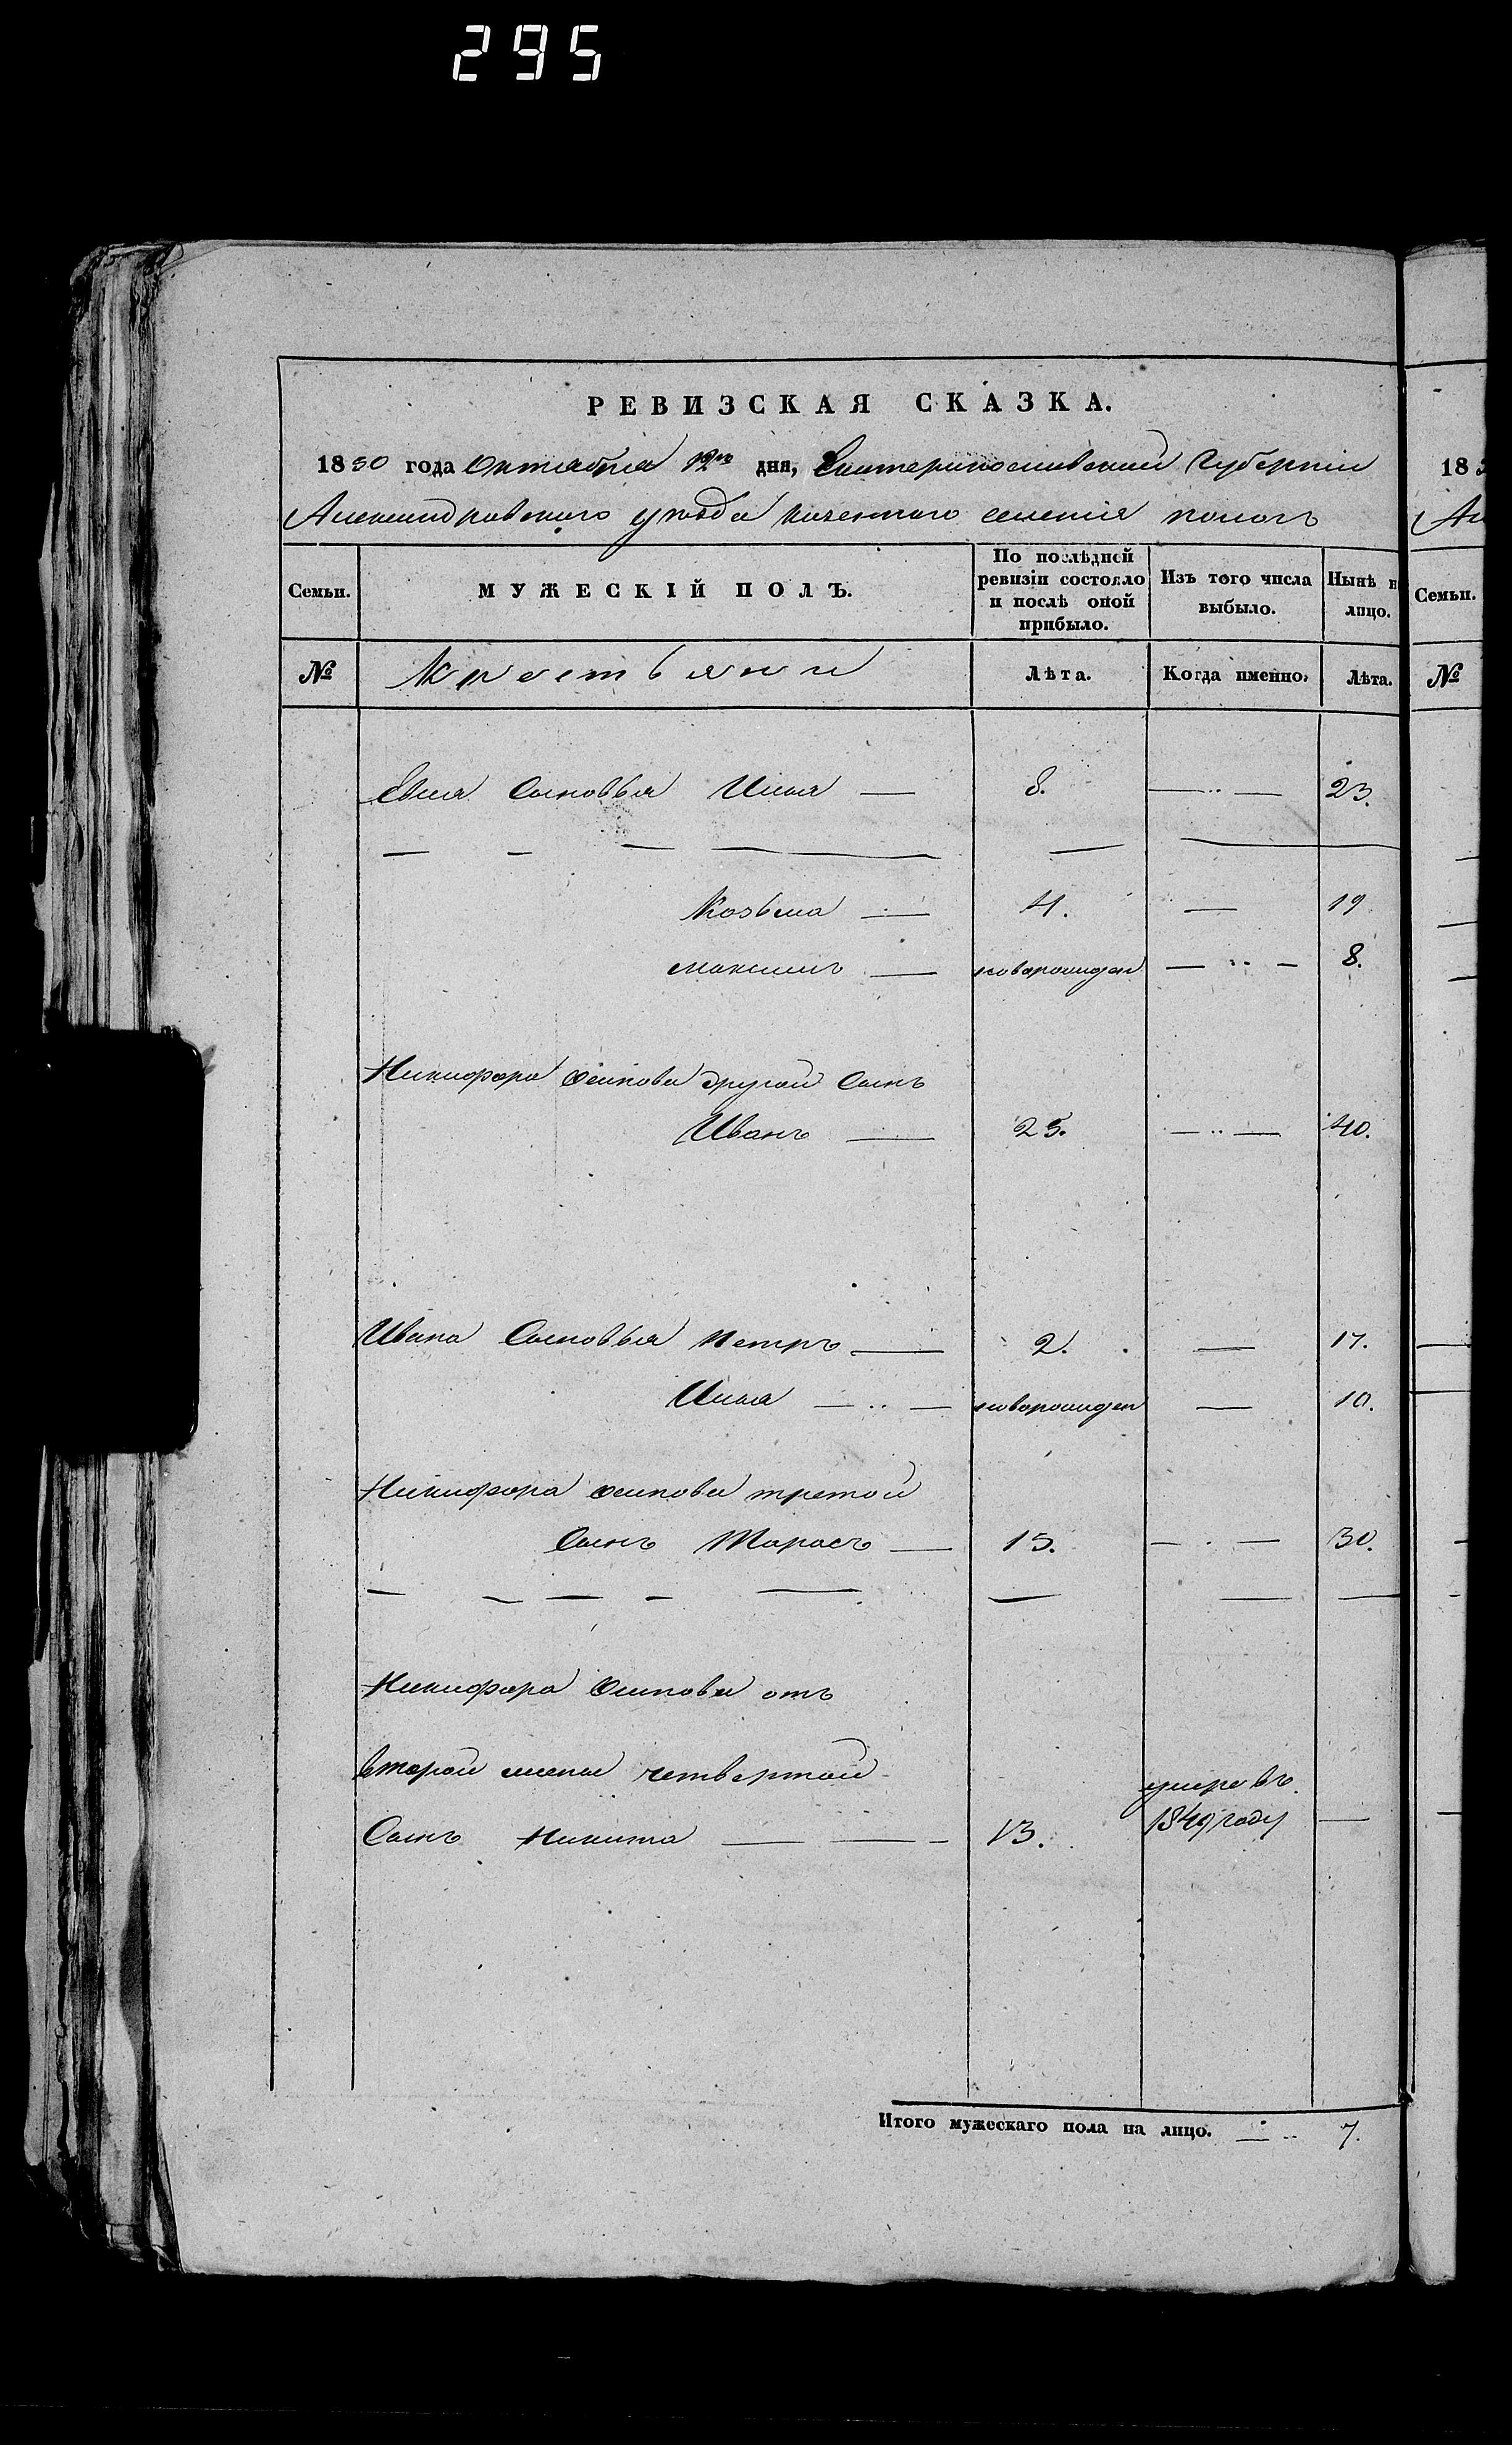 295
РЕВИЗСКАЯ СКАЗКА.
1850 года Октября 12го дня, Екатеринославской Губернии
Александровского уезда казенного селения
Семьи. МУЖЕСКІЙ ПОЛЪ. По послѣдней ревизіи состояло и послѣ оной прибыло. Изъ того числа выбыло. Нынѣ н лицо.
№ Крестьяни Лѣта. Когда именно. Лѣта.
Сыновья Илья — 8. — 23.
Козьма — 4. — 19
Максимъ — новорожден — 8.
Никифора Осипова другой Сынъ
Иванъ — 25. — 40.
Ивана Сыновья Петръ — 2. — 17.
Илья — новорожден — 10.
Никифора Осипова третой
Сынъ Тарасъ — 15. — 30.
Никифора Осипова отъ
второй жены четвертой
Сынъ Никита — 13. умре въ 1849 году —
Итого мужескаго пола на лицо. — 7.
18
Семьи.
№